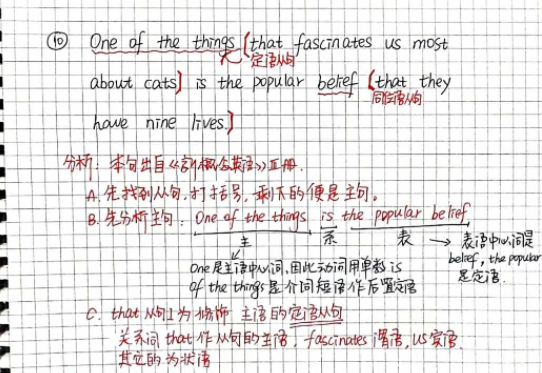 ⑩ One of the things (that fascinates us most
定语从句
about cats) is the popular belief (that they
同位语从句
have nine lives.)
分析: 本句出自《新概念英语》Ⅲ册.
A. 先找到从句, 打括号, 剩下的便是主句。
B. 先分析主句: One of the things is the popular belief
主 系 表 → 表语中心词是
One是主语中心词,因此动词用单数is belief, the popular
of the things是介词短语作后置定语 是定语.
C. that 从句1为修饰 主语的定语从句
关系词 that 作从句的主语, fascinates 谓语, us 宾语.
其它的为状语